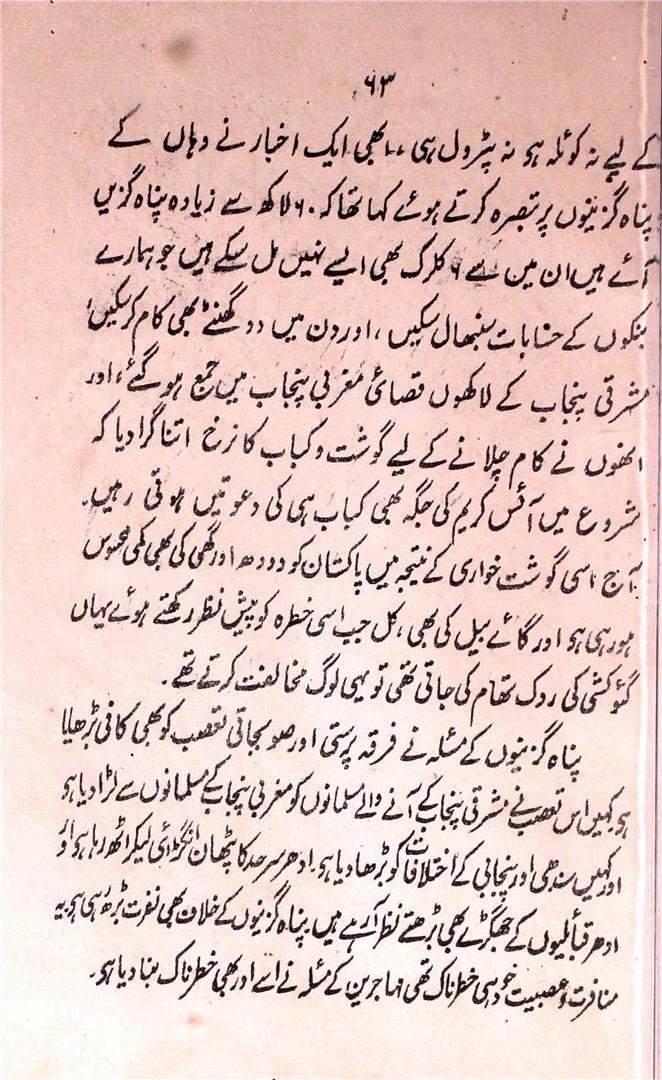 ۶۳
کے لیے نہ کوئلہ ہو نہ پٹرول ہی، ابھی ایک اخبار نے وہاں کے
پناہ گزینوں پر تبصرہ کرتے ہوئے کہا تھا کہ ۶۰ لاکھ سے زیادہ پناہ گزیں
آئے ہیں ان میں سے ۶ کلرک بھی ایسے نہیں مل سکے ہیں جو ہمارے
بنکوں کے حسابات سنبھال سکیں، اور دن میں دو گھنٹے بھی کام کر سکیں،
مشرقی پنجاب کے لاکھوں قصائی مغربی پنجاب میں جمع ہو گئے، اور
انھوں نے کام چلانے کے لیے گوشت و کباب کا نرخ اتنا گرا دیا کہ
شروع میں آئس کریم کی جگہ بھی کباب ہی کی دعوتیں ہوتی رہیں۔
آج اسی گوشت خواری کے نتیجہ میں پاکستان کو دودھ اور گھی کی بھی کمی محسوس
ہو رہی ہو اور گائے بیل کی بھی، کل جب اسی خطرہ کو پیش نظر رکھتے ہوئے یہاں
گئو کشی کی روک تھام کی جاتی تھی تو یہی لوگ مخالفت کرتے تھے۔
پناہ گزینوں کے مسئلہ نے فرقہ پرستی اور صوبجاتی تعصب کو بھی کافی بڑھایا
ہو کہیں اس تعصب نے مشرقی پنجاب کے آنے والے مسلمانوں کو مغربی پنجاب کے مسلمانوں سے لڑا دیا ہو
اور کہیں سندھی اور پنجابی کے اختلافات کو بڑھا دیا ہو۔ ادھر سرحد کا پٹھان انگڑائی لیکر اٹھ رہا ہو اور
ادھر قبائلیوں کے جھگڑے بھی بڑھتے نظر آ رہے ہیں پناہ گزینوں کے خلاف بھی نفرت بڑھ رہی ہو یہ
منافرت و عصبیت خود ہی خطرناک تھی مہاجرین کے مسئلہ نے اسے اور بھی خطرناک بنا دیا ہو۔